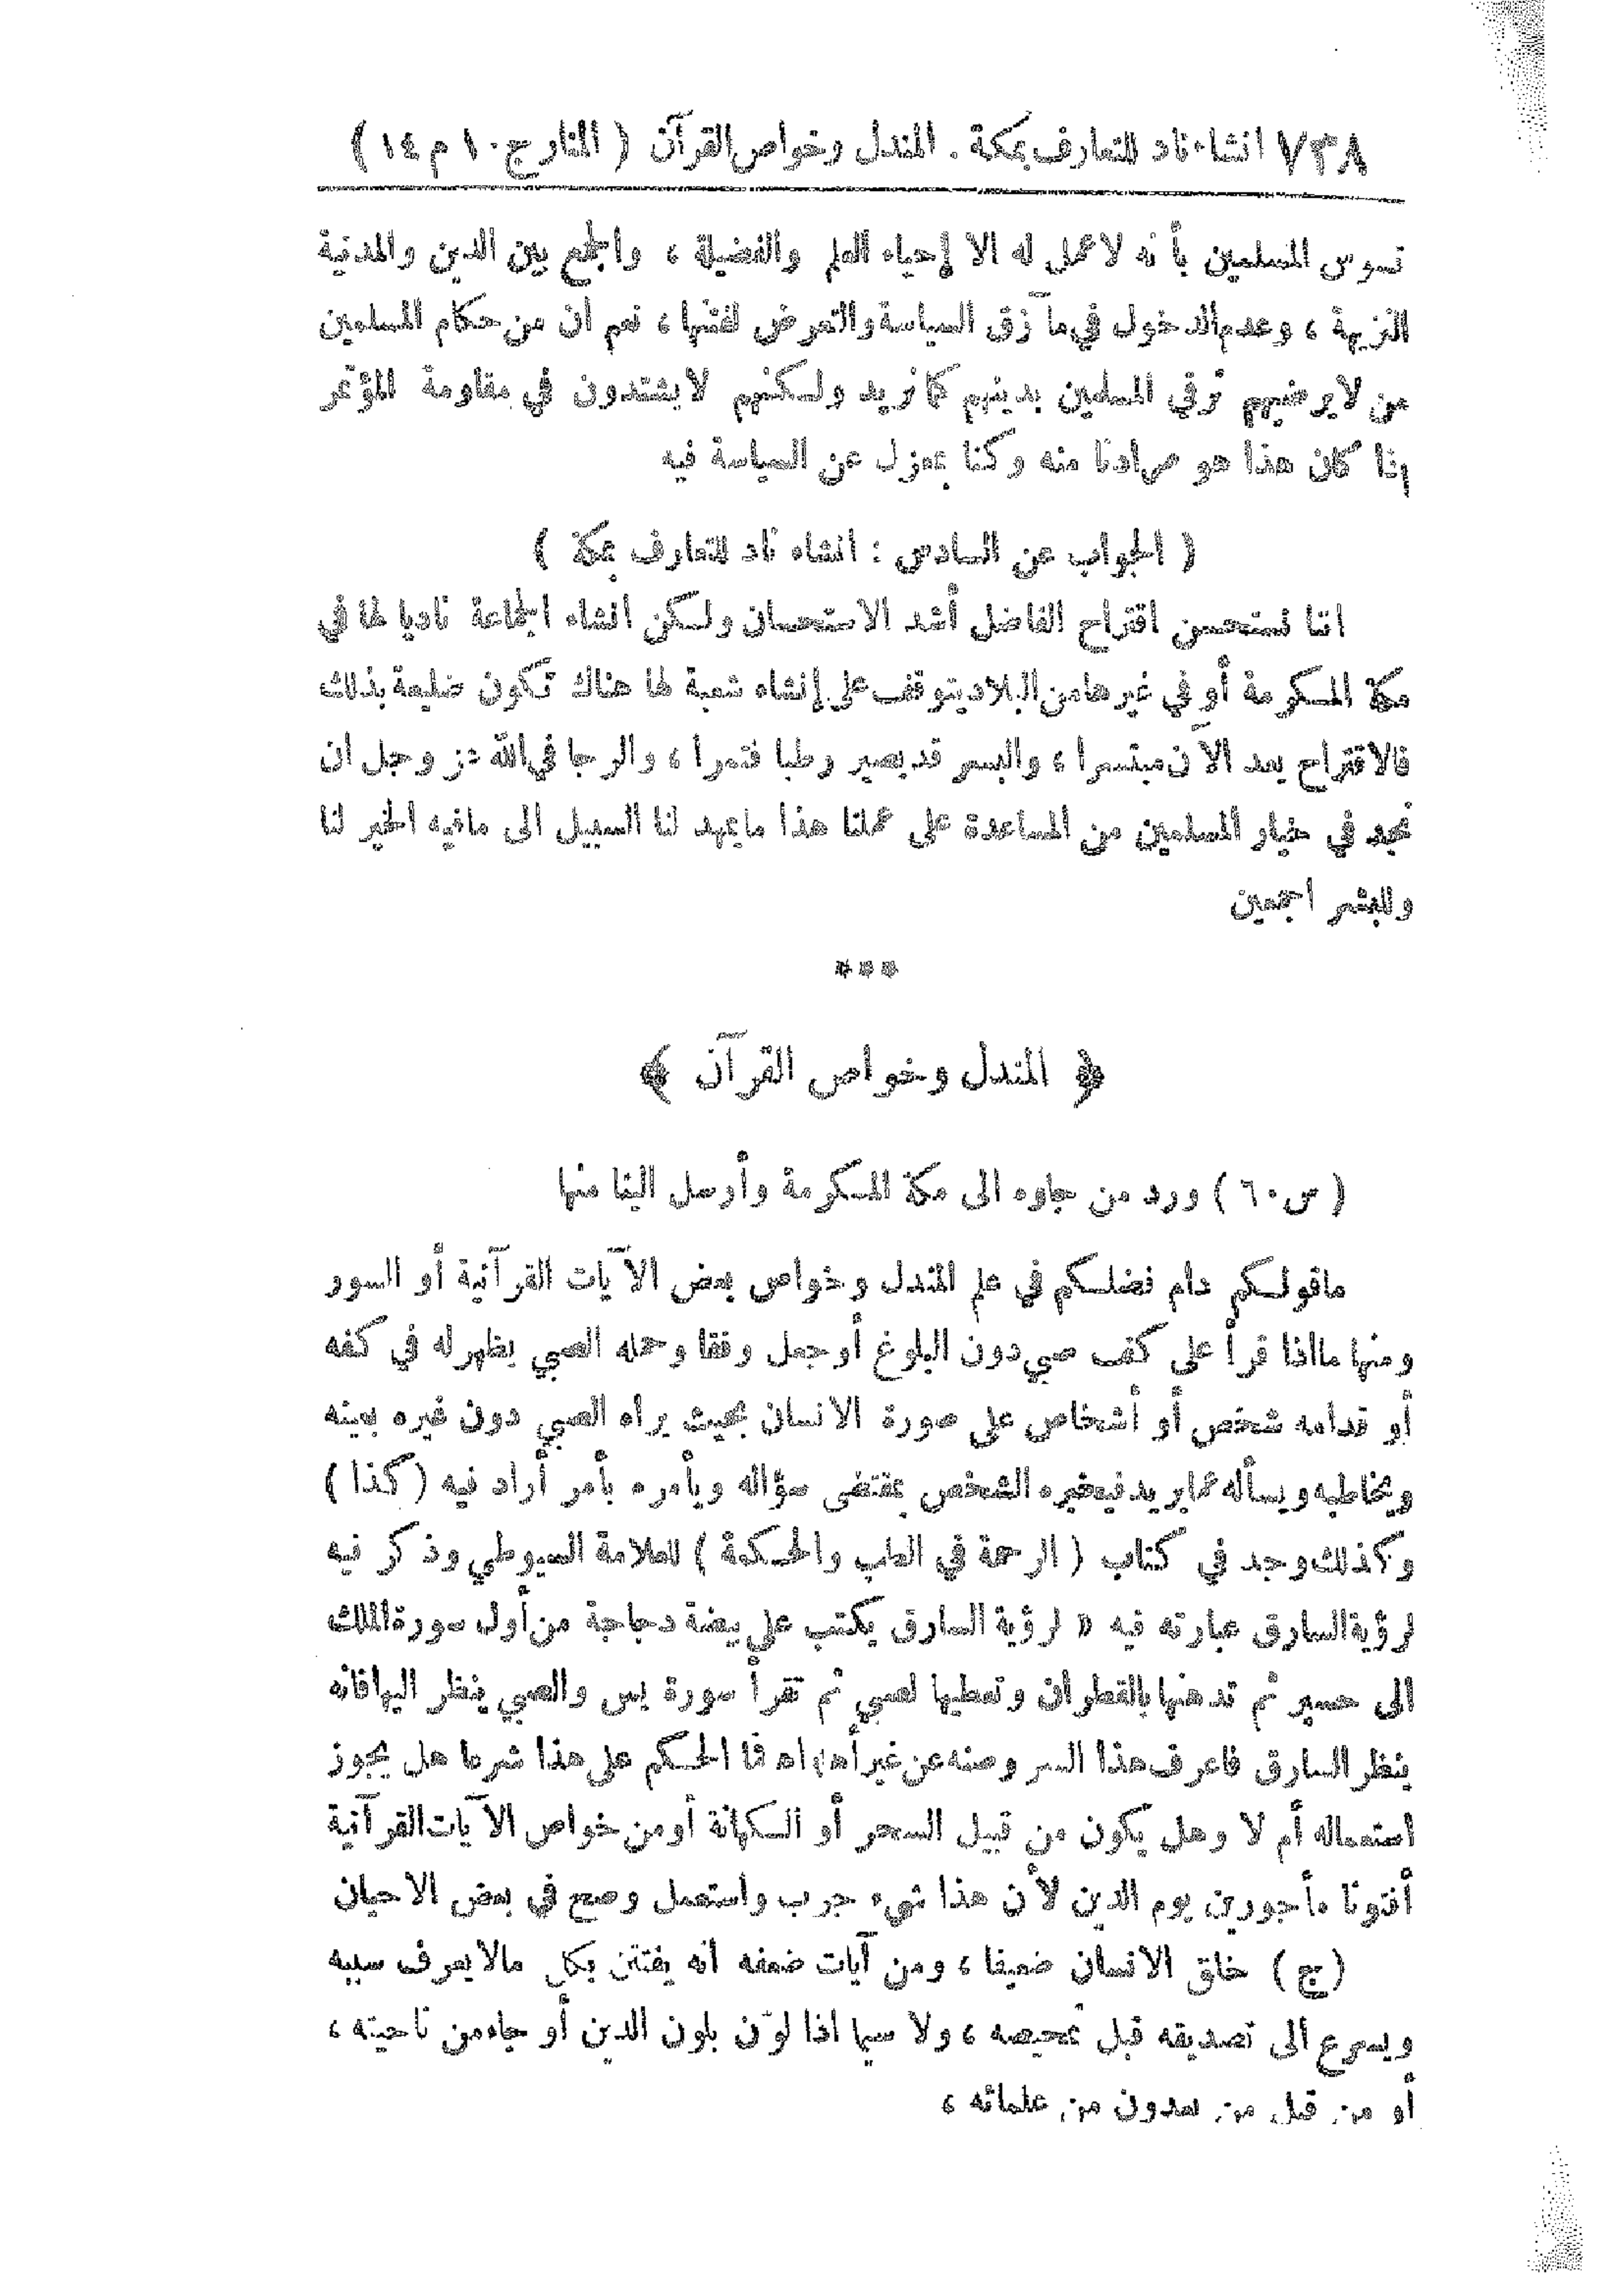 ٧٣٨ انشاء ناد للتعارف بمكة . المندل وخواص القرآن ( المنار ج ١٠ م ١٤ )
تسوس المسلمين بأنه لا عمل له الا إحياء العلم والفضيلة ، والجمع بين الدين والمدنية
النزيهة ، وعدم الدخول في مآزق السياسة والتعرض لفتنها ، نعم ان من حكام المسلمين
من لا يرضيهم ترقي المسلمين بدينهم كما نريد ولكنهم لا يشتدون في مقاومة المؤتمر
إذا كان هذا هو مرادنا منه وكنا بمعزل عن السياسة فيه
( الجواب عن السادس : انشاء ناد للتعارف بمكة )
اننا نستحسن اقتراح الفاضل أشد الاستحسان ولكن انشاء الجماعة ناديا لها في
مكة المكرمة أو في غيرها من البلاد يتوقف على إنشاء شعبة لها هناك تكون ضليعة بذلك
فالاقتراح يعد الآن مبتسرا ، والبسر قد يصير رطبا فتمرا ، والرجا في الله عز وجل ان
نجد في خيار المسلمين من المساعدة على عملنا هذا ما يمهد لنا السبيل الى ما فيه الخير لنا
وللبشر اجمعين
***
﴿ المندل وخواص القرآن ﴾
( س ٦٠ ) ورد من جاوه الى مكة المكرمة وأرسل الينا منها
ما قولكم دام فضلكم في علم المندل وخواص بعض الآيات القرآنية أو السور
ومنها ما اذا قرأ على كف صبي دون البلوغ أو جعل وفقا وحمله الصبي يظهر له في كفه
أو قدامه شخص أو أشخاص على صورة الانسان بحيث يراه الصبي دون غيره بعينه
ويخاطبه ويسأله عما يريد فيخبره الشخص بمقتضى سؤاله ويأمره بأمر أراد فيه ( كذا )
وكذلك وجد في كتاب ( الرحمة في الطب والحكمة ) للعلامة السيوطي وذكر فيه
لرؤية السارق عبارته فيه « لرؤية السارق يكتب على بيضة دجاجة من أول سورة الملك
الى حسير ثم تدهنها بالقطران وتعطيها لصبي ثم تقرأ سورة يس والصبي ينظر اليها فانه
ينظر السارق فاعرف هذا السر وصنه عن غير أهله اه فما الحكم على هذا شرعا هل يجوز
استعماله أم لا وهل يكون من قبيل السحر أو الكهانة أو من خواص الآيات القرآنية
أفتونا مأجورين يوم الدين لأن هذا شيء جرب واستعمل وصح في بعض الاحيان
( ج ) خلق الانسان ضعيفا ، ومن آيات ضعفه انه يفتتن بكل ما لا يعرف سببه
ويسرع الى تصديقه قبل تمحيصه ، ولا سيما اذا لوّن بلون الدين أو جاء من ناحيته ،
أو من قبل من يعدون من علمائه ،